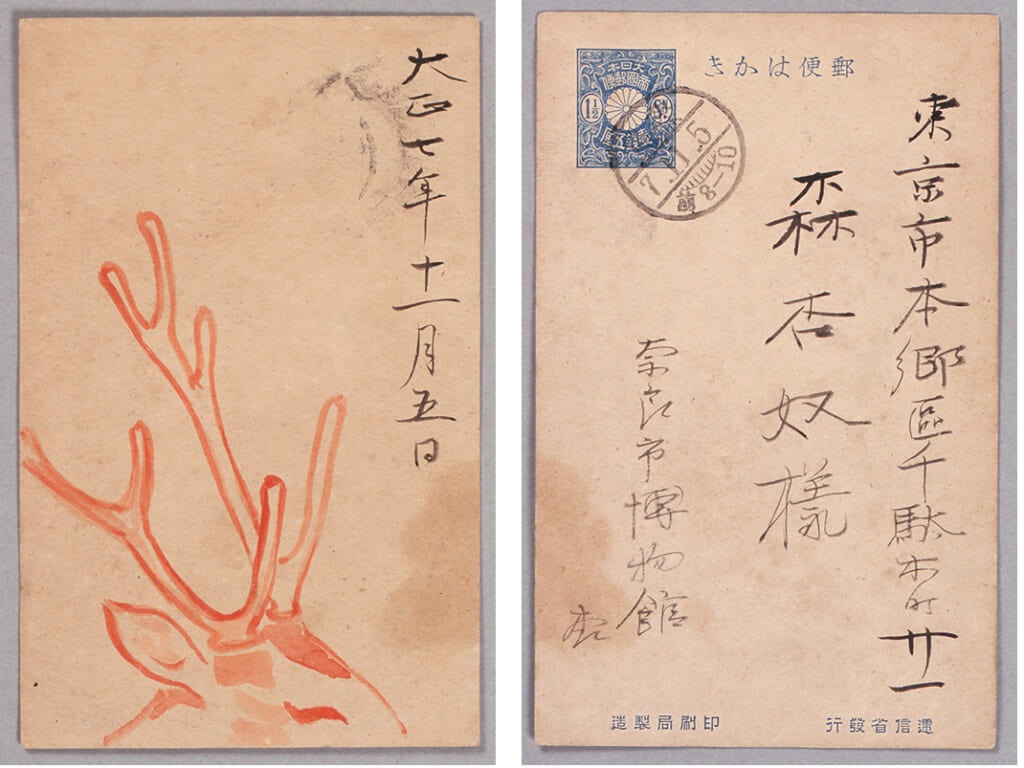 大正七年十一月五日
郵便はかき
大日本
帝國郵便
1½
壹錢五厘
7.11.5
前8-10
東京市本郷區千駄木町廿一
森杏奴樣
奈良市博物館
遞信省發行
印刷局製造